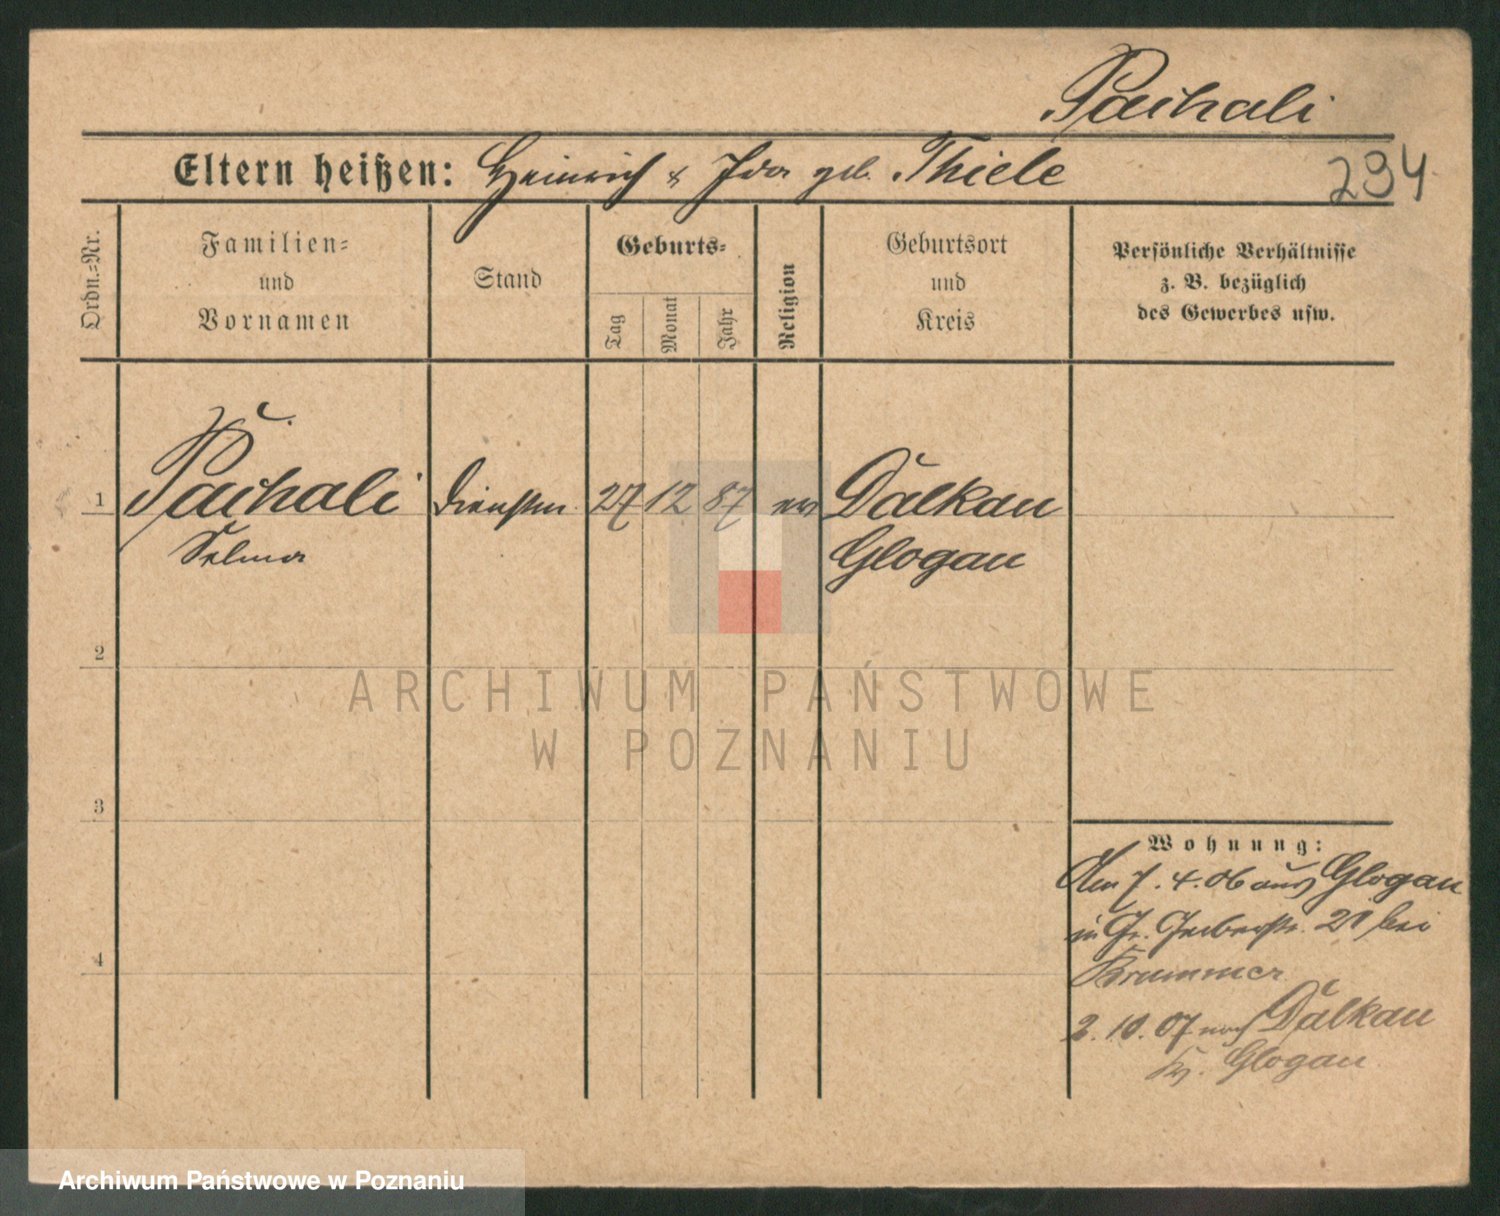 Pachali
Eltern heißen: Heinrich & Ida geb. Thiele
294
Ordn.=Nr.
Familien=
und
Vornamen
Stand
Geburts=
Tag
Monat
Jahr
Religion
Geburtsort
und
Kreis
Persönliche Verhältnisse
z. B. bezüglich
des Gewerbes usw.
1
Pachali
Selma
Dienstm.
27
12
87
ev
Dalkau
Glogau
2
ARCHIWUM PAŃSTWOWE
W POZNANIU
3
4
Wohnung:
Am 7. 4. 06 aus Glogau
in Gr. Gerberstr. 21 bei
Krummer
2. 10. 07 nach Dalkau
Kr. Glogau
Archiwum Państwowe w Poznaniu